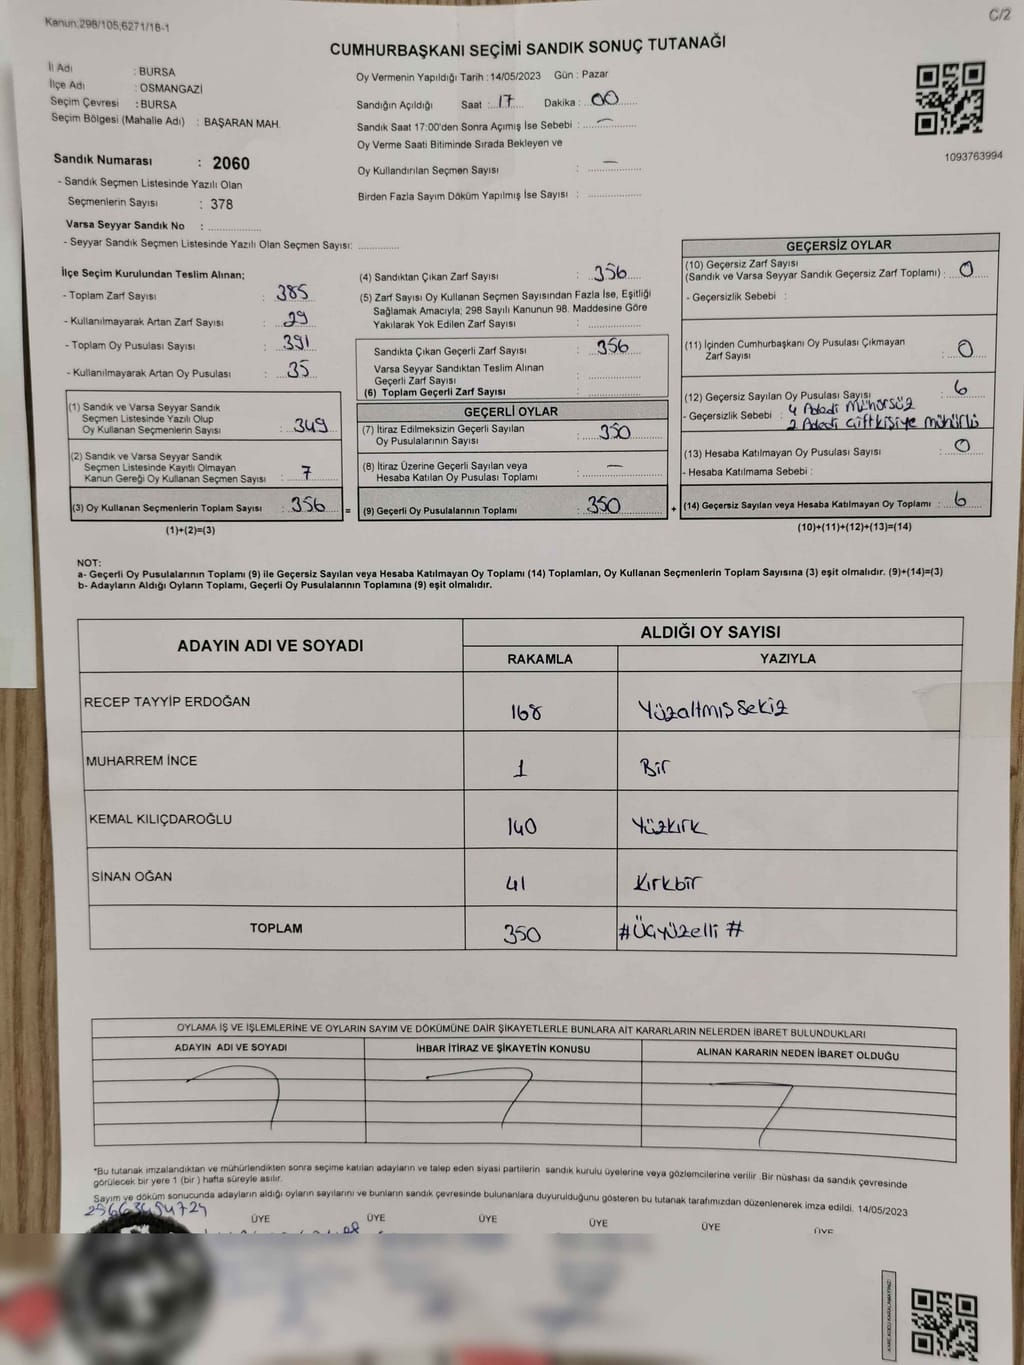 Kanun:298/105,6271/18-1
C/2
CUMHURBAŞKANI SEÇİMİ SANDIK SONUÇ TUTANAĞI
İl Adı : BURSA
İlçe Adı : OSMANGAZİ
Seçim Çevresi : BURSA
Seçim Bölgesi (Mahalle Adı) : BAŞARAN MAH.
Sandık Numarası : 2060
- Sandık Seçmen Listesinde Yazılı Olan
Seçmenlerin Sayısı : 378
Varsa Seyyar Sandık No :
- Seyyar Sandık Seçmen Listesinde Yazılı Olan Seçmen Sayısı:
Oy Vermenin Yapıldığı Tarih : 14/05/2023 Gün : Pazar
Sandığın Açıldığı Saat : 17 Dakika : 00
Sandık Saat 17:00'den Sonra Açımış İse Sebebi : —
Oy Verme Saati Bitiminde Sırada Bekleyen ve
Oy Kullandırılan Seçmen Sayısı : —
Birden Fazla Sayım Döküm Yapılmış İse Sayısı :
1093763994
İlçe Seçim Kurulundan Teslim Alınan;
- Toplam Zarf Sayısı : 385
- Kullanılmayarak Artan Zarf Sayısı : 29
- Toplam Oy Pusulası Sayısı : 391
- Kullanılmayarak Artan Oy Pusulası : 35
(1) Sandık ve Varsa Seyyar Sandık
Seçmen Listesinde Yazılı Olup
Oy Kullanan Seçmenlerin Sayısı : 349
(2) Sandık ve Varsa Seyyar Sandık
Seçmen Listesinde Kayıtlı Olmayan
Kanun Gereği Oy Kullanan Seçmen Sayısı : 7
(3) Oy Kullanan Seçmenlerin Toplam Sayısı : 356 =
(1)+(2)=(3)
(4) Sandıktan Çıkan Zarf Sayısı : 356
(5) Zarf Sayısı Oy Kullanan Seçmen Sayısından Fazla İse, Eşitliği
Sağlamak Amacıyla; 298 Sayılı Kanunun 98. Maddesine Göre
Yakılarak Yok Edilen Zarf Sayısı :
Sandıkta Çıkan Geçerli Zarf Sayısı : 356
Varsa Seyyar Sandıktan Teslim Alınan
Geçerli Zarf Sayısı :
(6) Toplam Geçerli Zarf Sayısı :
GEÇERLİ OYLAR
(7) İtiraz Edilmeksizin Geçerli Sayılan
Oy Pusulalarının Sayısı : 350
(8) İtiraz Üzerine Geçerli Sayılan veya
Hesaba Katılan Oy Pusulası Toplamı : —
(9) Geçerli Oy Pusulalarının Toplamı : 350 +
GEÇERSİZ OYLAR
(10) Geçersiz Zarf Sayısı
(Sandık ve Varsa Seyyar Sandık Geçersiz Zarf Toplamı) : 0
- Geçersizlik Sebebi :
(11) İçinden Cumhurbaşkanı Oy Pusulası Çıkmayan
Zarf Sayısı : 0
(12) Geçersiz Sayılan Oy Pusulası Sayısı : 6
- Geçersizlik Sebebi : 4 Adedi Mühürsüz
2 Adedi Çift kişiye mühürlü
(13) Hesaba Katılmayan Oy Pusulası Sayısı : 0
- Hesaba Katılmama Sebebi :
(14) Geçersiz Sayılan veya Hesaba Katılmayan Oy Toplamı : 6
(10)+(11)+(12)+(13)=(14)
NOT:
a- Geçerli Oy Pusulalarının Toplamı (9) ile Geçersiz Sayılan veya Hesaba Katılmayan Oy Toplamı (14) Toplamları, Oy Kullanan Seçmenlerin Toplam Sayısına (3) eşit olmalıdır. (9)+(14)=(3)
b- Adayların Aldığı Oyların Toplamı, Geçerli Oy Pusulalarının Toplamına (9) eşit olmalıdır.
ADAYIN ADI VE SOYADI
ALDIĞI OY SAYISI
RAKAMLA YAZIYLA
RECEP TAYYİP ERDOĞAN 168 Yüzaltmış Sekiz
MUHARREM İNCE 1 Bir
KEMAL KILIÇDAROĞLU 140 Yüzkırk
SİNAN OĞAN 41 Kırkbir
TOPLAM 350 #Üçyüzelli #
OYLAMA İŞ VE İŞLEMLERİNE VE OYLARIN SAYIM VE DÖKÜMÜNE DAİR ŞİKAYETLERLE BUNLARA AİT KARARLARIN NELERDEN İBARET BULUNDUKLARI
ADAYIN ADI VE SOYADI İHBAR İTİRAZ VE ŞİKAYETİN KONUSU ALINAN KARARIN NEDEN İBARET OLDUĞU
*Bu tutanak imzalandıktan ve mühürlendikten sonra seçime katılan adayların ve talep eden siyasi partilerin sandık kurulu üyelerine veya gözlemcilerine verilir .Bir nüshası da sandık çevresinde
görülecek bir yere 1 (bir ) hafta süreyle asılır.
Sayım ve döküm sonucunda adayların aldığı oyların sayılarını ve bunların sandık çevresinde bulunanlara duyurulduğunu gösteren bu tutanak tarafımızdan düzenlenerek imza edildi. 14/05/2023
ÜYE ÜYE ÜYE ÜYE ÜYE ÜYE